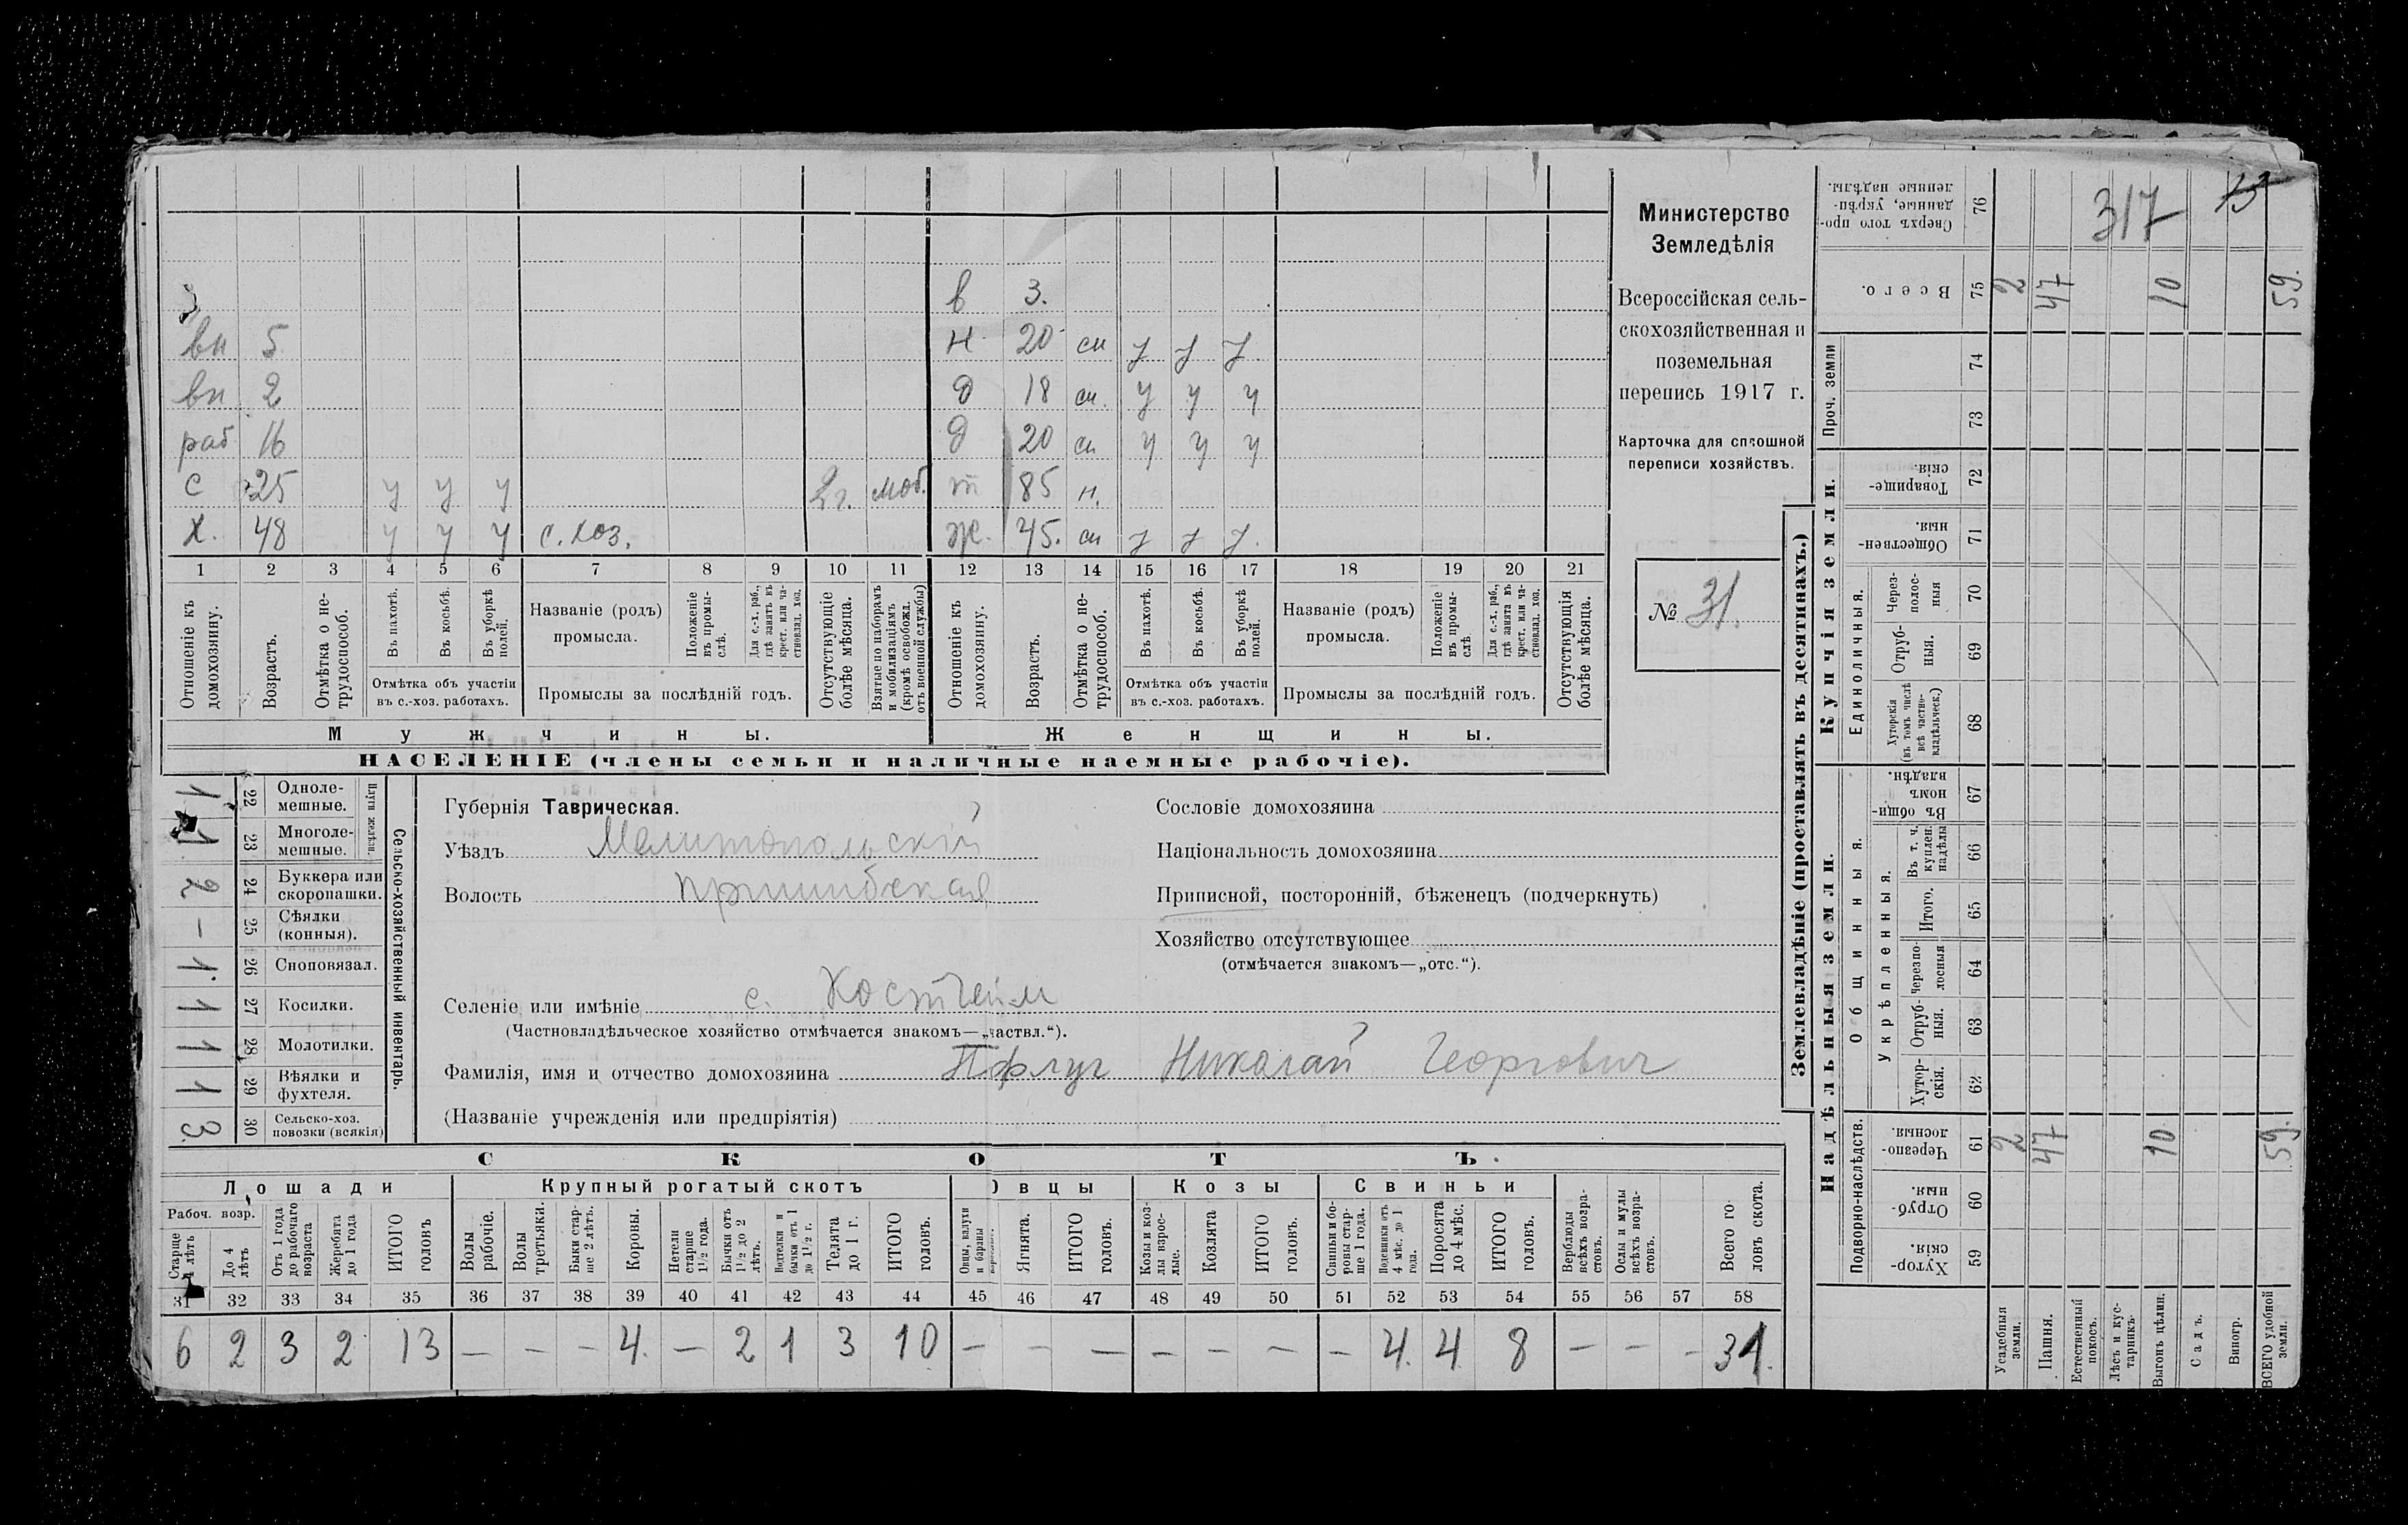 Министерство
Земледѣлія
Всероссійская сель-
скохозяйственная и
поземельная
перепись 1917 г.
Карточка для сплошной
переписи хозяйствъ.
№ 31.
в 3.
вн 5 н 20 сп у у у
вн 2 д 18 сп. у у у
раб 16 д 20 сп у у у
с 25 у у у 2 г. моб. m 85 н.
х. 48 у у у с. хоз. ж. 45. сп у у у.
1 2 3 4 5 6 7 8 9 10 11 12 13 14 15 16 17 18 19 20 21
Отношеніе къ домохозяину.
Возрастъ.
Отмѣтка о не-трудоспособ.
Въ пахотѣ.
Въ косьбѣ.
Въ уборкѣ полей.
Отмѣтка объ участіи
въ с.-хоз. работахъ.
Названіе (родъ)
промысла.
Положеніе въ промы-слѣ.
Для с.-х. раб., гдѣ занятъ въ крест. или ча-стновлад. хоз.
Промыслы за послѣдній годъ.
Отсутствующіе болѣе мѣсяца.
Взятые по наборамъ и мобилизаціямъ (кромѣ освобожд. отъ военной службы)
Отношеніе къ домохозяину.
Возрастъ.
Отмѣтка о не-трудоспособ.
Въ пахотѣ.
Въ косьбѣ.
Въ уборкѣ полей.
Отмѣтка объ участіи
въ с.-хоз. работахъ.
Названіе (родъ)
промысла.
Положеніе въ промы-слѣ
Для с.-х. раб., гдѣ занята въ крест. или ча-стновлад. хоз.
Промыслы за послѣдній годъ.
Отсутствующія болѣе мѣсяца.
Мужчины. Женщины.
НАСЕЛЕНІЕ (члены семьи и наличные наемные рабочіе).
Сельско-хозяйственный инвентарь.
Плуги желѣзн.
1 22 Одноле-мешные.
1 23 Многоле-мешные.
2 24 Буккера или скоропашки.
– 25 Сѣялки (конныя).
1 26 Сноповязал.
1 27 Косилки.
1 28 Молотилки.
1 29 Вѣялки и фухтеля.
3 30 Сельско-хоз. повозки (всякія)
Губернія Таврическая.
Уѣздъ Мелитопольскій
Волость Пришибская
Сословіе домохозяина
Національность домохозяина
Приписной, посторонній, бѣженецъ (подчеркнуть)
Хозяйство отсутствующее
(отмѣчается знакомъ—„отс.“).
Селеніе или имѣніе с. Костгейм
(Частновладѣльческое хозяйство отмѣчается знакомъ—„частвл.“).
Фамилія, имя и отчество домохозяина Пфлуг Николай Георгович
(Названіе учрежденія или предпріятія)
СКОТЪ.
Лошади Крупный рогатый скотъ Овцы Козы Свиньи
Рабоч. возр.
Старше 4 лѣтъ
До 4 лѣтъ
Отъ 1 года до рабочаго возраста
Жеребята до 1 года
ИТОГО головъ
Волы рабочіе.
Волы третьяки.
Быки стар-ше 2 лѣтъ.
Коровы.
Нетели старше 1½ года.
Бычки отъ 1½ до 2 лѣтъ.
Подтелки и бычки отъ 1 до 1½ г.
Телята до 1 г.
ИТОГО головъ.
Овцы, валухи и бараны
Ягнята.
ИТОГО головъ.
Козы и коз-лы взрос-лые.
Козлята
ИТОГО головъ.
Свиньи и бо-ровы стар-ше 1 года.
Подсвинки отъ 4 мѣс. до 1 года.
Поросята до 4 мѣс.
ИТОГО головъ.
Верблюды всѣхъ возра-стовъ.
Ослы и мулы всѣхъ возра-стовъ.
Всего го-ловъ скота.
31 32 33 34 35 36 37 38 39 40 41 42 43 44 45 46 47 48 49 50 51 52 53 54 55 56 57 58
6 2 3 2 13 — — — 4. — 2 1 3 10 — — — — — — — 4. 4 8 — — — 31.
Землевладѣніе (проставлять въ десятинахъ.)
Надѣльныя земли. Купчія земли.
Проч. земли
Подворно-наслѣдств.
Общинныя.
Укрѣпленныя.
Единоличныя.
317 13
Сверхъ того про-данные, укрѣп-ленные надѣлы. 76
Всего. 75 2 47 10 59.
74
73
Товарище-скія. 72
Обществен-ныя. 71
Через-полос-ныя 70
Отруб-ныя. 69
Хуторскія (въ томъ числѣ всѣ частно-владѣльческ.) 68
Въ общин-номъ владѣн. 67
Въ т. ч. куплен. надѣлы 66
Итого. 65
Черезпо-лосныя 64
Отруб-ныя. 63
Хутор-скія. 62
Черезпо-лосныя. 61 2 47 10 59.
Отруб-ныя. 60
Хутор-скія. 59
Усадебныя земли.
Пашня.
Естественный покосъ.
Лѣсъ и кус-тарникъ.
Выгонъ цѣлин.
Садъ.
Виногр.
ВСЕГО удобной земли.